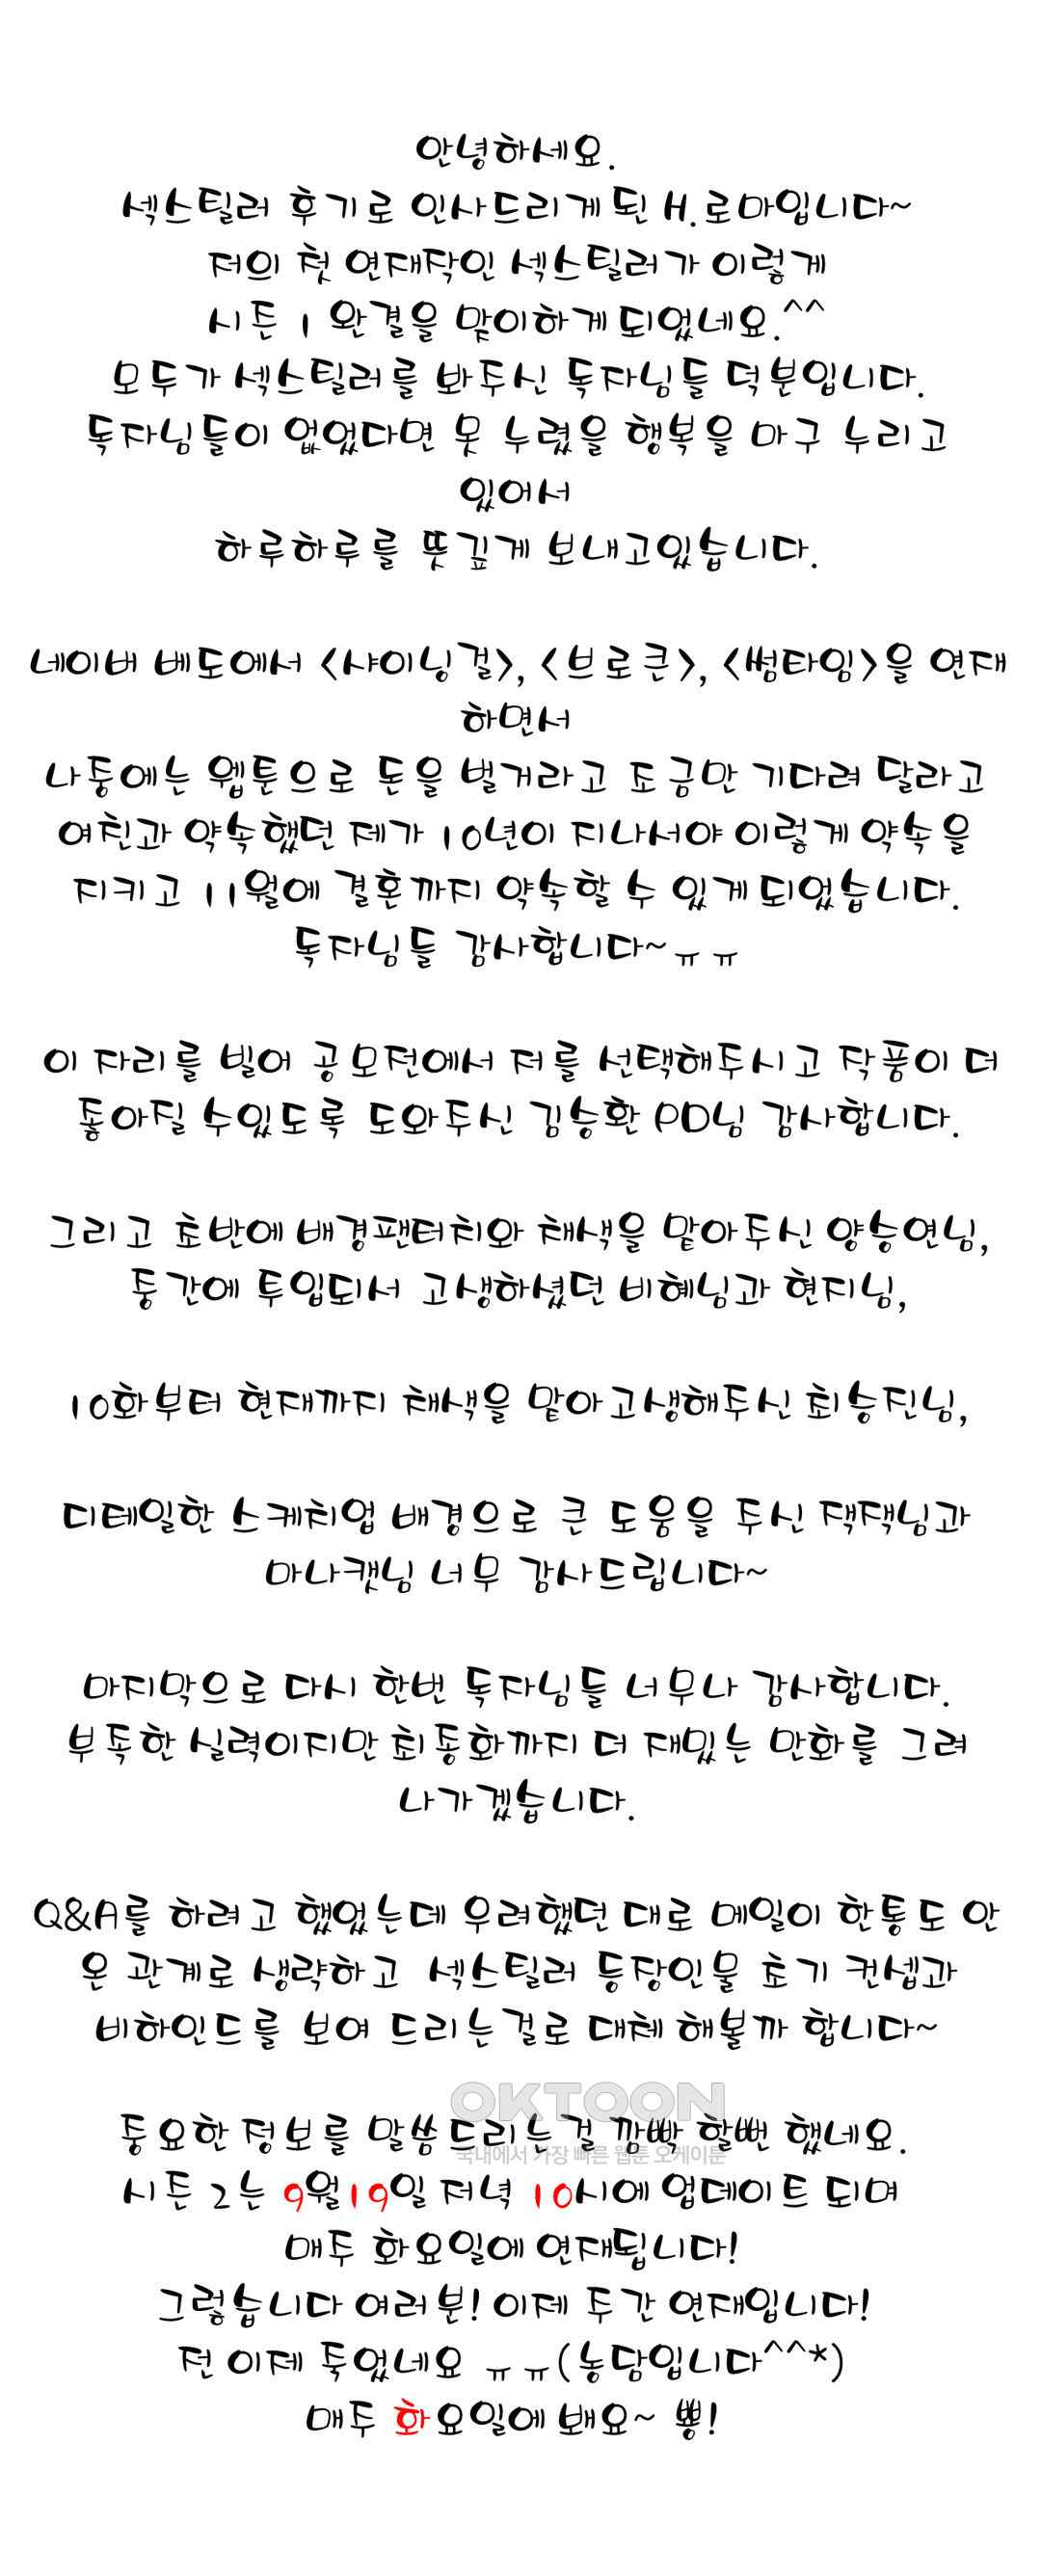 안녕하세요.
섹스틸러 후기로 인사드리게 된 H.로마입니다~
저의 첫 연재작인 섹스틸러가 이렇게
시즌 1 완결을 맞이하게 되었네요.^^
모두가 섹스틸러를 봐주신 독자님들 덕분입니다.
독자님들이 없었다면 못 누렸을 행복을 마구 누리고
있어서
하루하루를 뜻깊게 보내고있습니다.
네이버 베도에서 <샤이닝걸>, <브로큰>, <썸타임>을 연재
하면서
나중에는 웹툰으로 돈을 벌거라고 조금만 기다려 달라고
여친과 약속했던 제가 10년이 지나서야 이렇게 약속을
지키고 11월에 결혼까지 약속할 수 있게 되었습니다.
독자님들 감사합니다~ㅠㅠ
이 자리를 빌어 공모전에서 저를 선택해주시고 작품이 더
좋아질 수있도록 도와주신 김승환 PD님 감사합니다.
그리고 초반에 배경팬터치와 채색을 맡아주신 양승연님,
중간에 투입되서 고생하셨던 비혜님과 현지님,
10화부터 현재까지 채색을 맡아고생해주신 최승진님,
디테일한 스케치업 배경으로 큰 도움을 주신 잭잭님과
마나캣님 너무 감사드립니다~
마지막으로 다시 한번 독자님들 너무나 감사합니다.
부족한 실력이지만 최종화까지 더 재밌는 만화를 그려
나가겠습니다.
Q&A를 하려고 했었는데 우려했던 대로 메일이 한통도 안
온 관계로 생략하고 섹스틸러 등장인물 초기 컨셉과
비하인드를 보여 드리는걸로 대체 해볼까 합니다~
OKTOON
중요한 정보를 말씀드리는걸 깜빡 할뻔 했네요.
국내에서 가장 빠른 웹툰 오케이툰
시즌 2는 9월19일 저녁 10시에 업데이트 되며
매주 화요일에 연재됩니다!
그렇습니다 여러분! 이제 주간 연재입니다!
전 이제 죽었네요 ㅠㅠ(농담입니다^^*)
매주 화요일에 봬요~ 뿅!